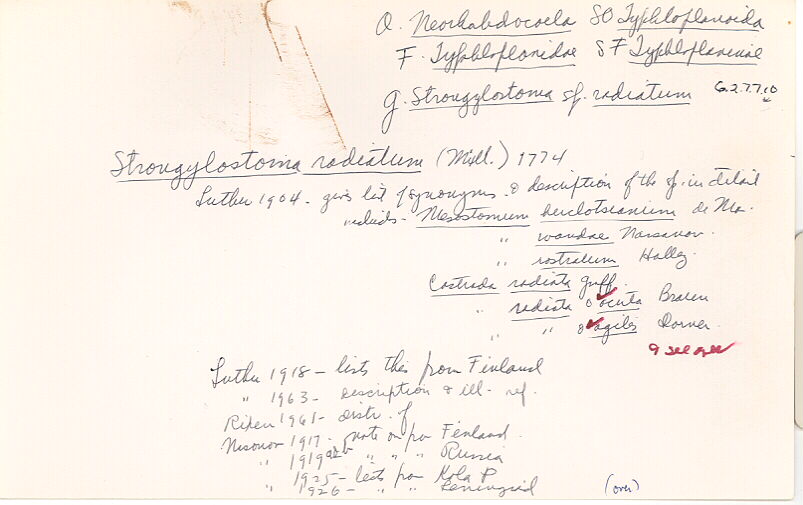 O. Neorhabdocoela SO Typhloplanoida
F. Typhloplanidae SF Typhloplaninae
g. Strongylostoma sp. radiatum G.2.7.7.10
Strongylostoma radiatum (Müll.) 1774
Luther 1904 - gives list of synonyms & description of the sp. in detail
includes - Mesostomum de Man
" Nassonov
" rostratum Hallez
Castrada radiata Graff
" radiata Braun
" " agilis Dorner
Luther 1918 - lists this from Finland
" 1963 - description & ill - ref.
1961 - distr. of
Nasonov 1917 - note on from Finland.
" 1919 " " " Russia
" 1925 - lists from Kola P
" 1926 - " " Leningrad
(over)